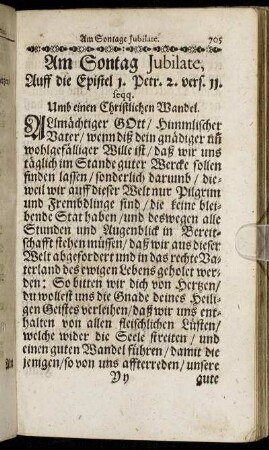 Am Sontage Jubilate. 705
Am Sontag Jubilate,
Auff die Epistel 1. Petr. 2. vers. 11.
seqq.
Umb einen Christlichen Wandel.
ALmächtiger GOtt/ Himmlischer
Vater/ wenn diß dein gnädiger uñ
wohlgefälliger Wille ist/ daß wir uns
täglich im Stande guter Wercke sollen
finden lassen/ sonderlich darumb/ die-
weil wir auff dieser Welt nur Pilgrim
und Frembdlinge sind/ die keine blei-
bende Stat haben/ und deswegen alle
Stunden und Augenblick in Bereit-
schafft stehen müssen/ daß wir aus dieser
Welt abgefordert und in das rechte Va-
terland des ewigen Lebens geholet wer-
den: So bitten wir dich von Hertzen/
du wollest uns die Gnade deines Heili-
gen Geistes verleihen/ daß wir uns ent-
halten von allen fleischlichen Lüsten/
welche wider die Seele streiten/ und
einen guten Wandel führen/ damit die
jenigen/ so von uns affterreden/ unsere
Yy gute